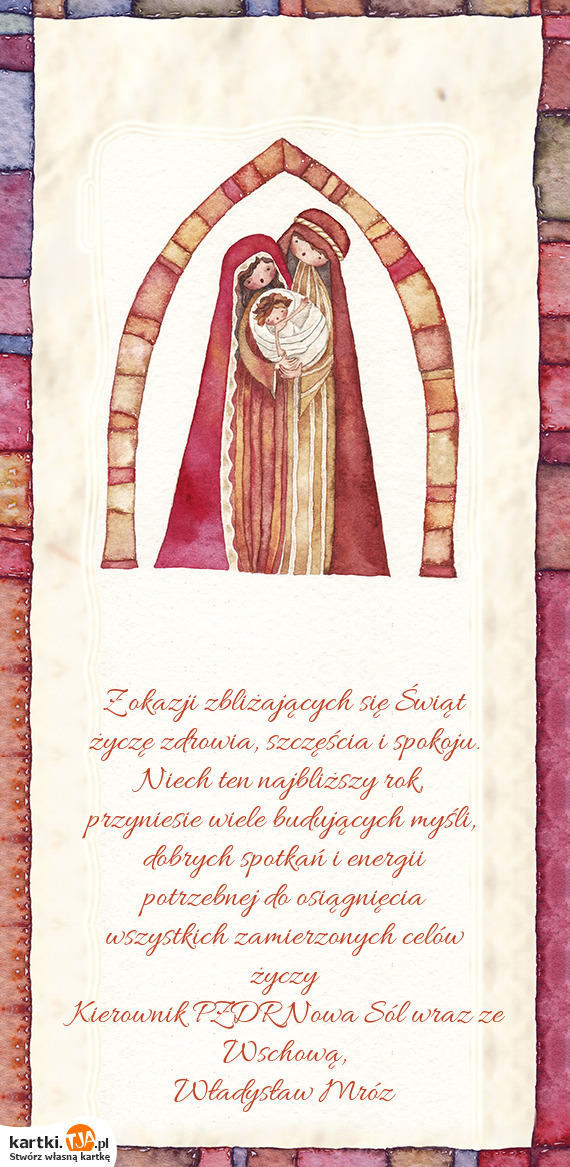 Z okazji zbliżających się Świąt
życzę zdrowia, szczęścia i spokoju.
Niech ten najbliższy rok
przyniesie wiele budujących myśli,
dobrych spotkań i energii
potrzebnej do osiągnięcia
wszystkich zamierzonych celów
życzy
Kierownik PZDR Nowa Sól wraz ze
Wschową,
Władysław Mróz
kartki.TJA.pl
Stwórz własną kartkę